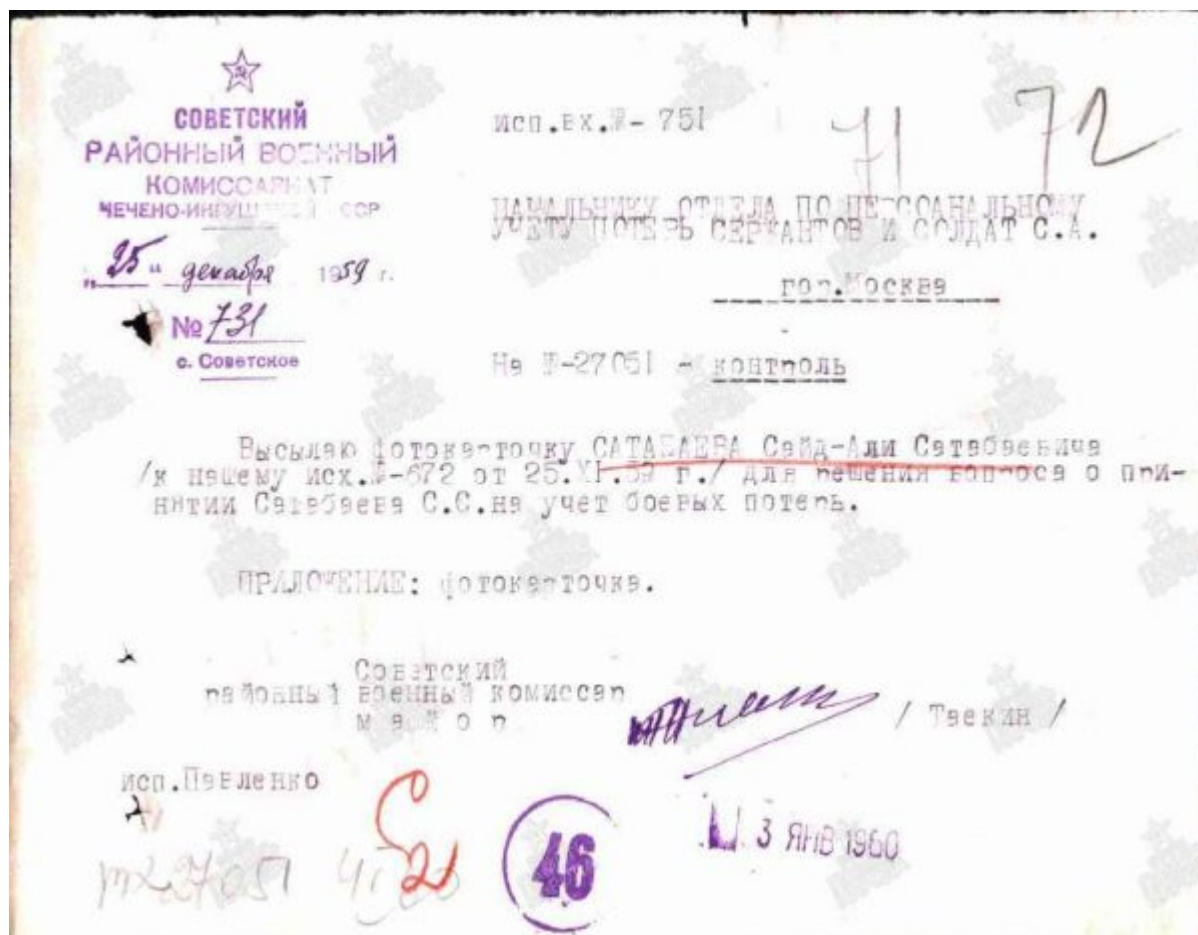 СОВЕТСКИЙ
РАЙОННЫЙ ВОЕННЫЙ
КОМИССАРИАТ
ЧЕЧЕНО-ИНГУШСКОЙ АССР
„25“ декабря 1959 г.
№ 731
с. Советское
исп.вх.№- 751
71 72
НАЧАЛЬНИКУ ОТДЕЛА ПО ПЕРСОАНАЛЬНОМУ
УЧЕТУ ПОТЕРЬ СЕРЖАНТОВ И СОЛДАТ С.А.
гор.Москва
На №-27051 - контроль
Высылаю фотокарточку САТАБАЕВА Сайд-Али Сатабаевича
/к нашему исх.№-672 от 25.XI.59 г./ для решения вопроса о при-
нятии Сатабаева С.С.на учет боевых потерь.
ПРИЛОЖЕНИЕ: фотокарточка.
Советский
районный военный комиссар
м а й о р
/ Твекин /
исп.Павленко
27051
46
3 ЯНВ 1960